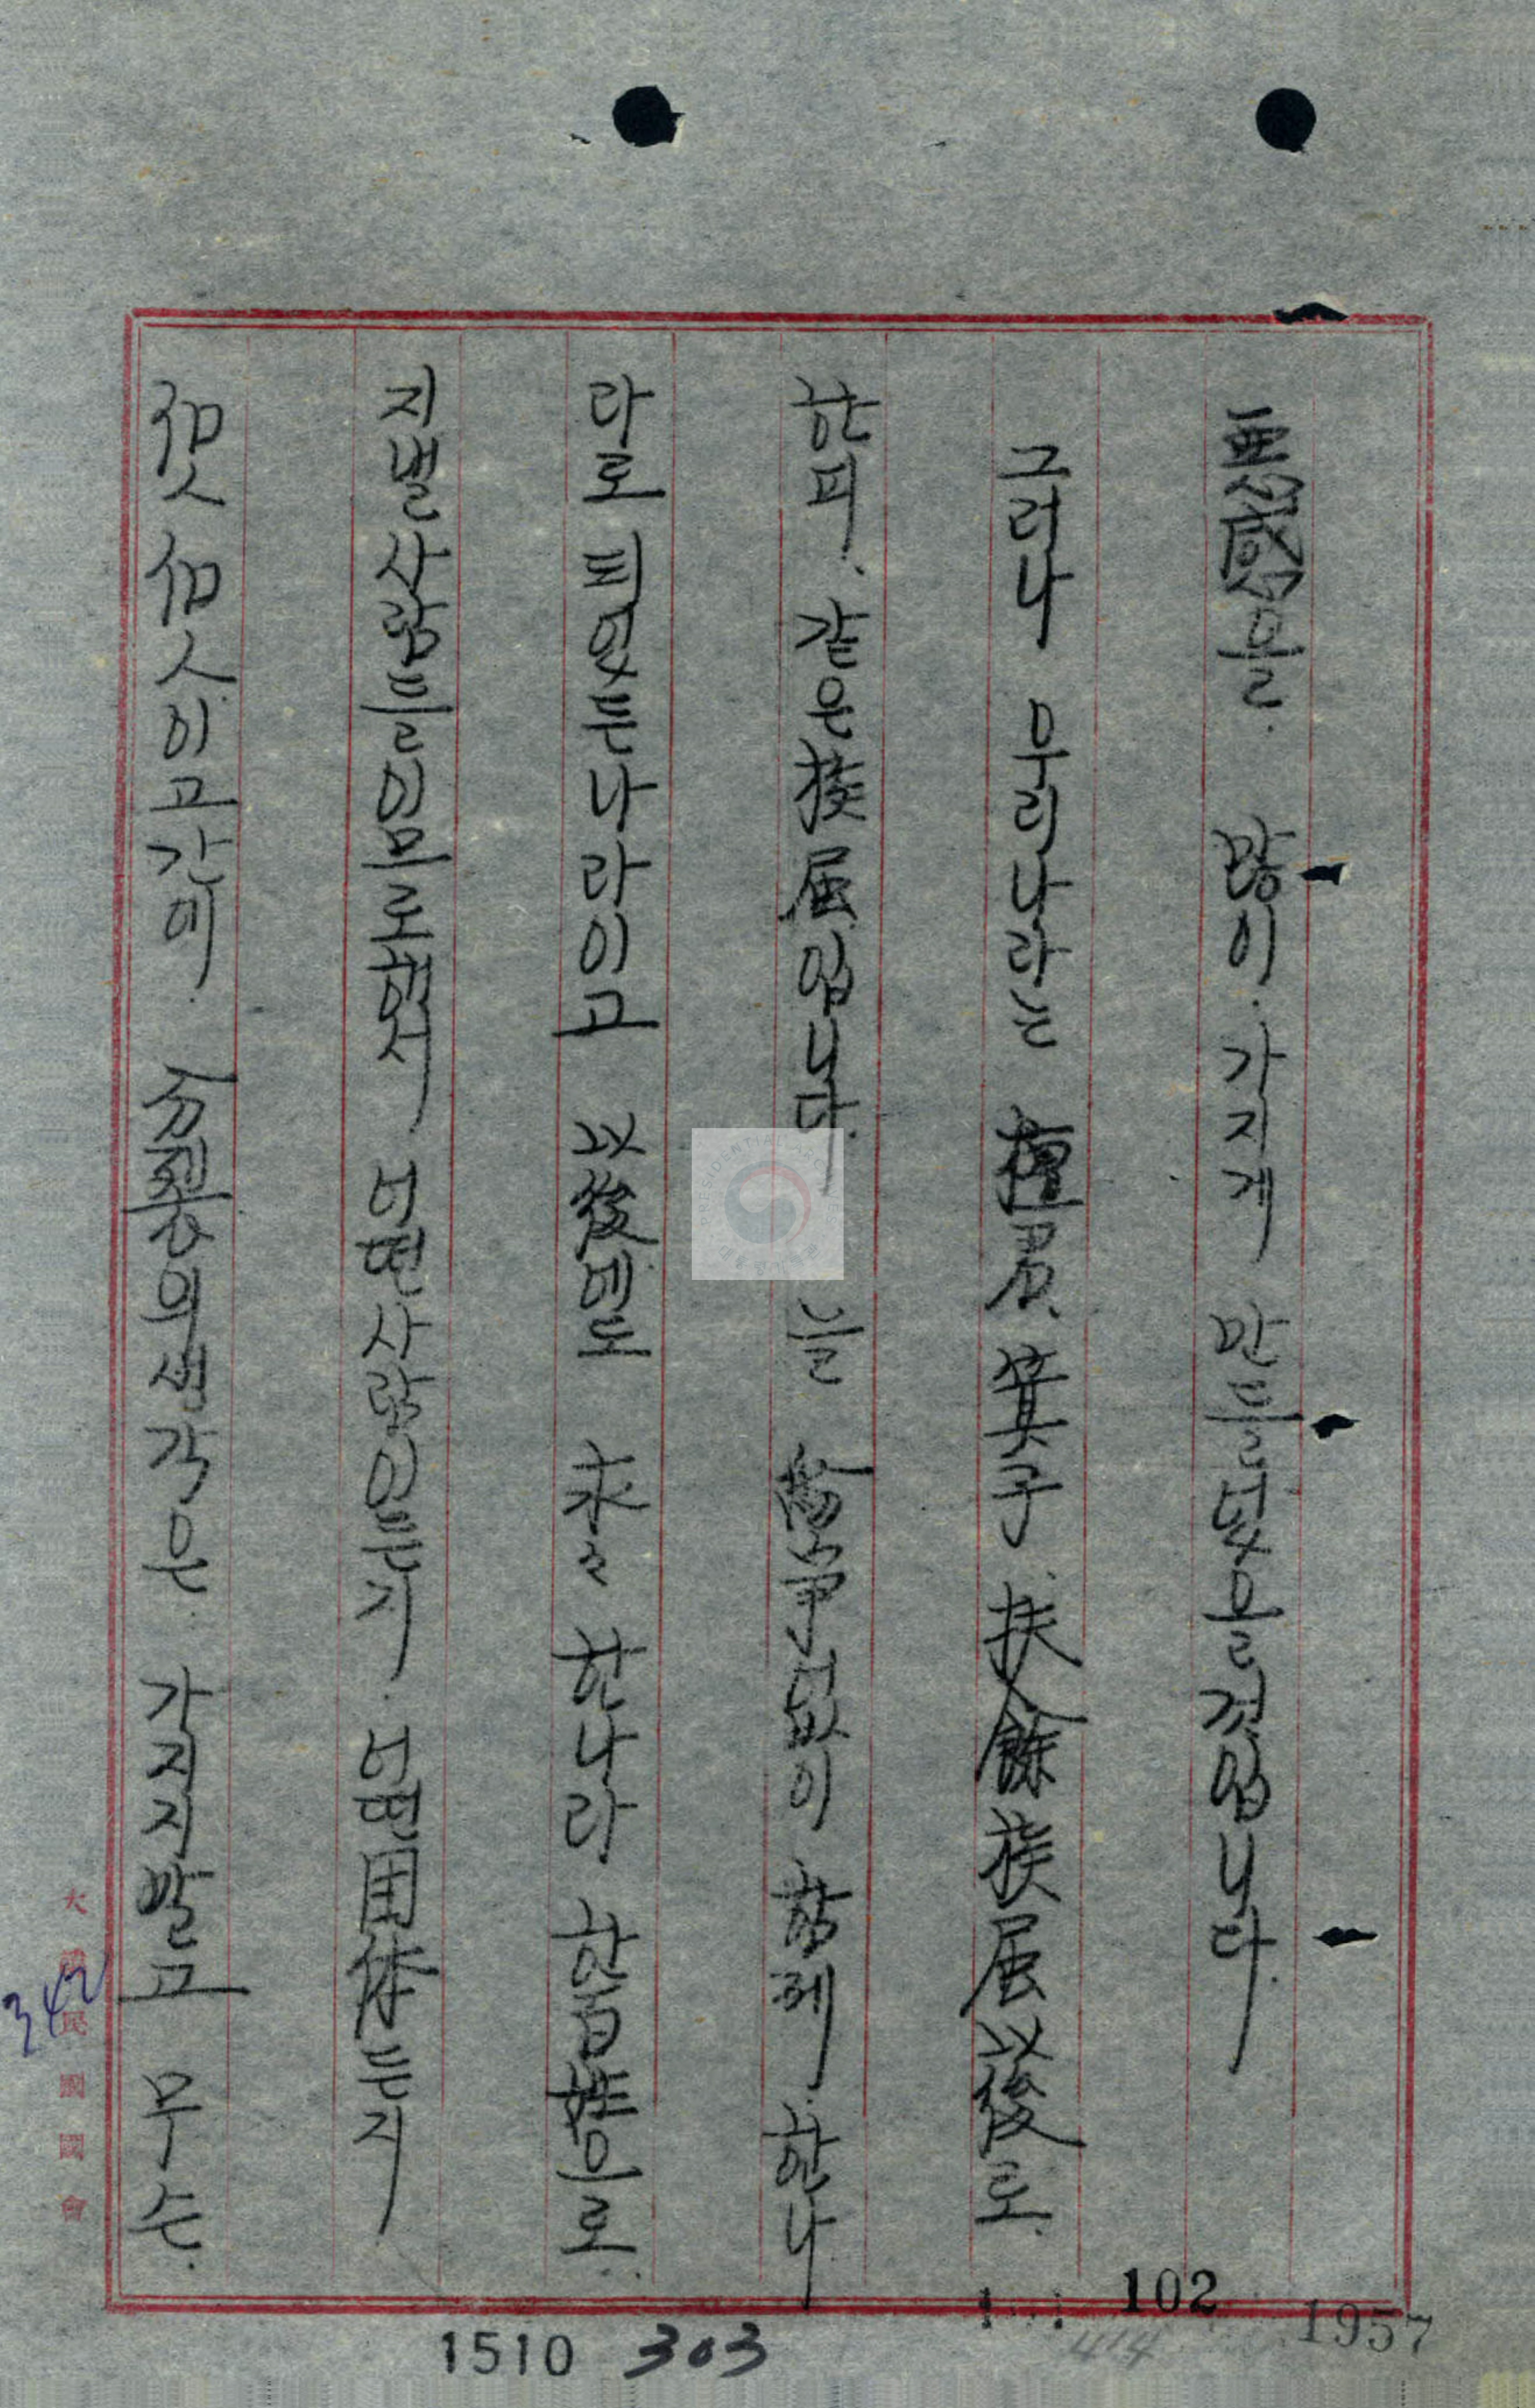 惡感을. 많이. 가지게 만들었을것입니다.
그러나 우리나라는 檀君. 箕子. 扶餘族屬以後로.
한피. 같은族屬입니다. 늘 紛爭없이 함께. 한나
라로 되였든나라이고 以後에도 永々 한나라. 한百姓으로.
지낼사람들이므로해서. 어떤사람이든지. 어떤団体든지
個人 個人이고간에. 分裂의생각은. 가지지말고 무슨.
大韓民國國會
342
102
1957
414
1510 303